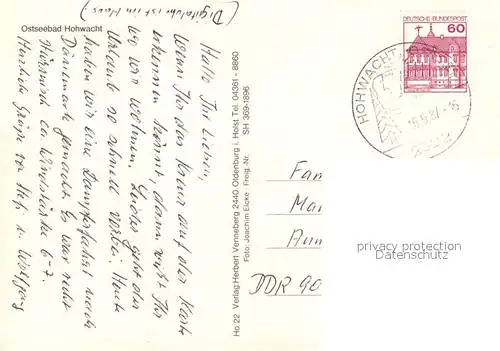 (Digitaluhr ist im Haus)
Ostseebad Hohwacht
Hallo Ihr Lieben,
Wenn Ihr das Kreuz auf der Karte
erkennen könnt, dann wißt Ihr
wo wir wohnen. Leider geht der
Urlaub so schnell vorbei. Heute
haben wir eine Dampferfahrt nach
Dänemark gemacht. Es war recht
stürmisch ca Windstärke 6-7.
Herzliche Grüße von Steffi u. Wolfgang
Ho 22 Verlag Herbert Venneberg 2440 Oldenburg i. Holst Tel. 04361 - 8860
Foto: Joachim Eicke · Freig.-Nr. SH 369-1896
DEUTSCHE BUNDESPOST
60
HOHWACHT
Fam
DDR 90
privacy protection
Datenschutz